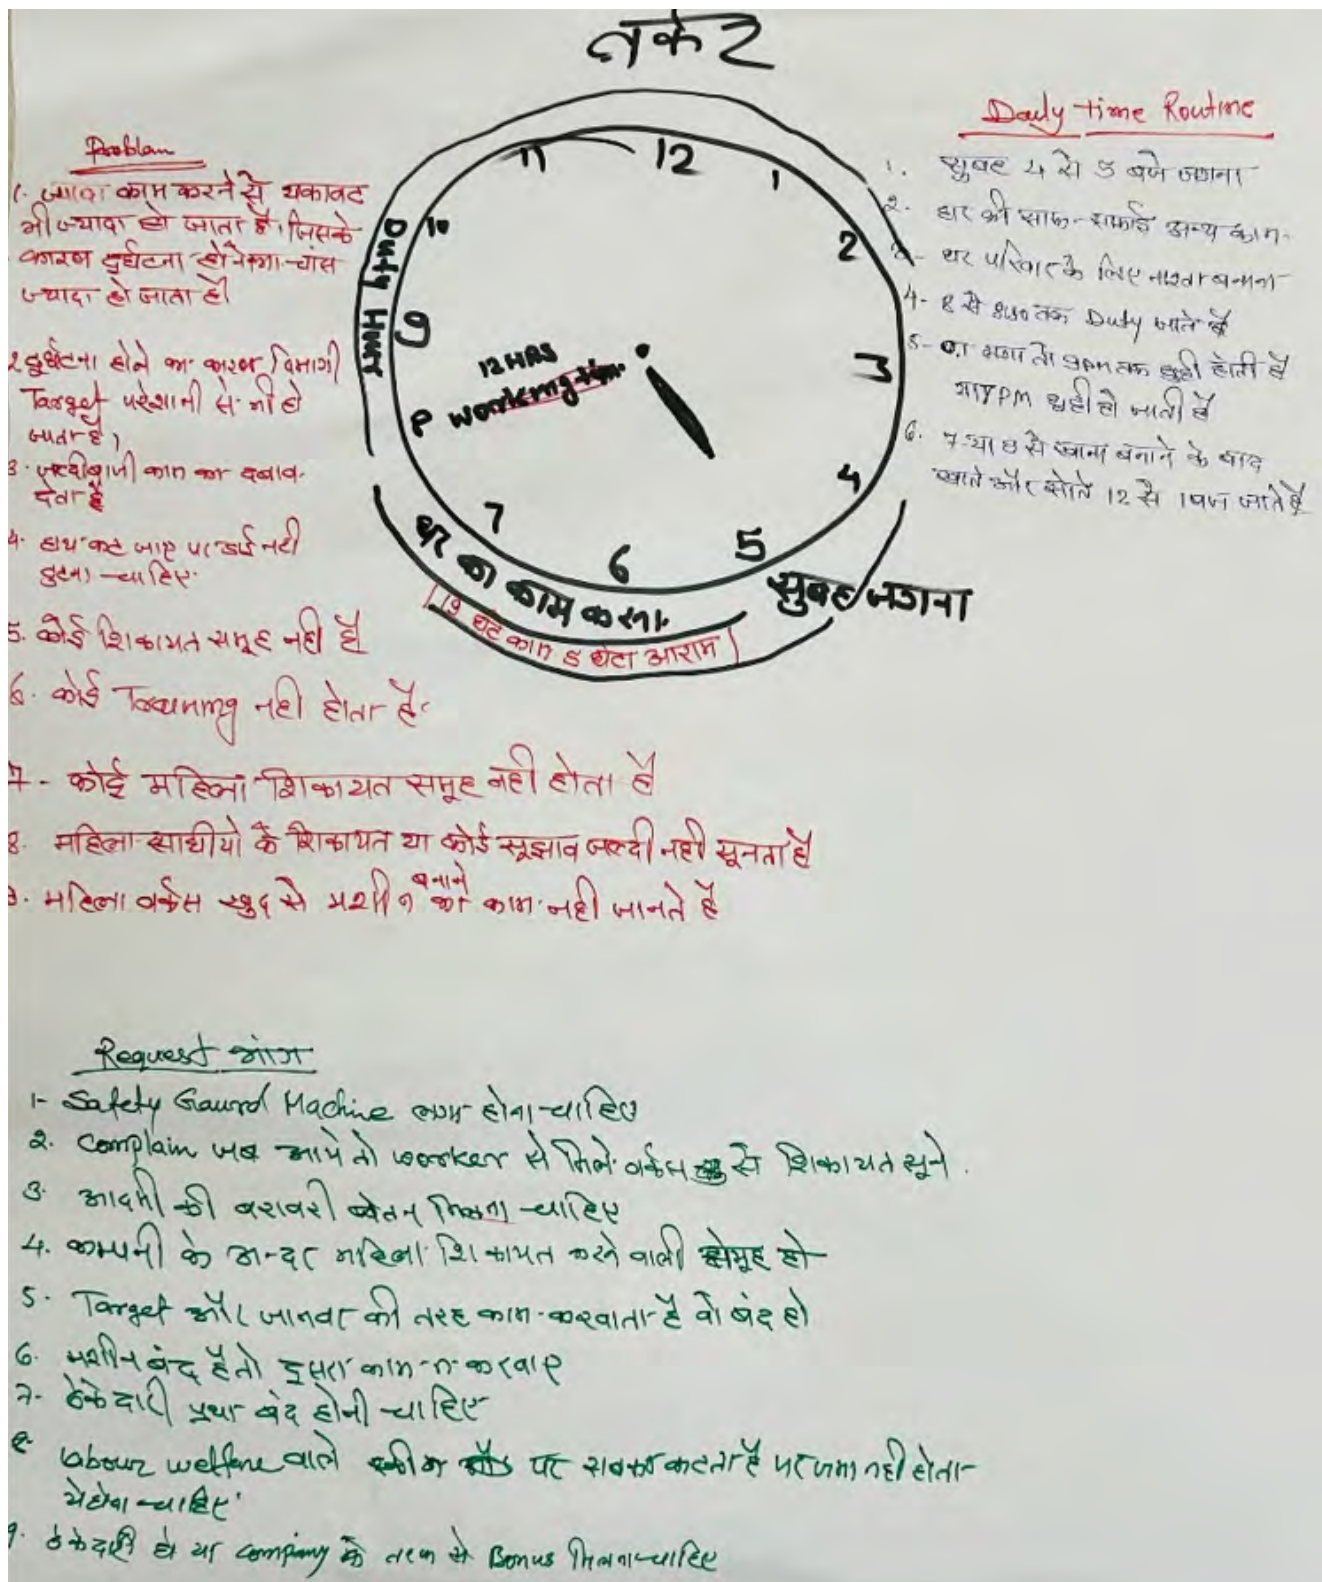 Problam
1. ज्यादा काम करने से थकावट
भी ज्यादा हो जाता है, जिसके
कारण दुर्घटना होने का चांस
ज्यादा हो जाता है।
2. दुर्घटना होने का कारण
Target परेशानी से भी हो
जाता है,
3. जल्दीबाजी काम का दबाव
देता है
4. हाथ कट जाए पर नही
टुटना चाहिए
5. कोई शिकायत समूह नही है
6. कोई Traunmg नही होता है
7- कोई महिला शिकायत समूह नही होता है
8. महिला साथीयो के शिकायत या कोई सूझाव जल्दी नही सूनता है
9. महिला वर्कस खुद से मशीन बनाने का काम नही जानते है
11
12
1
2
3
4
5
6
7
9
10
Duty Hour
12 HRS
working
घर का काम करना
सुबह जगना
19 घंटे काम 5 घंटा आराम
Daily time Routine
1. सुबह 4 से 5 बजे जगना
2. की साफ-सफाई अन्य काम
3- घर परिवार के लिए नाश्ता बनाना
4- 8 से 8:30 तक Duty जाते है
5- तो 9pm तक छुट्टी होती है
या 7 PM छुट्टी हो जाती है
6. 7 या 8 से खाना बनाने के बाद
खाते और सोते 12 से 1 बज जाते है
Request मांग
1- Safety Gaurd Machine लगा होना चाहिए
2. Complain जब आये तो worker से मिले वर्कस से शिकायत सूने.
3. आदमी की बराबरी वेतन मिलना चाहिए
4. कम्पनी के अन्दर महिला शिकायत करने वाली समूह हो
5. Target और जानवर की तरह काम करवाता है वो बंद हो
6. मशीन बंद है तो दुसरा काम न करवाए
7- ठेकेदारी प्रथा बंद होनी चाहिए
8- Labour welfare वाले पर सबका कटता है पर जमा नही होता
ये होना चाहिए
9. ठेकेदारी हो या company के तरफ से Bonus मिलना चाहिए